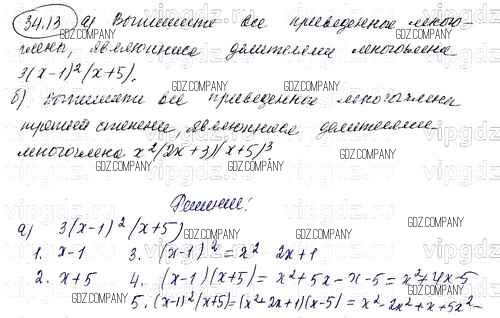 34.13 а) Выпишите все приведенные много-
члены, являющиеся делителями многочлена
3(x-1)²(x+5).
б) Выпишите все приведенные многочлены
третьей степени, являющиеся делителями
многочлена x²(2x+3)(x+5)³
Решение:
а) 3(x-1)²(x+5)
1. x-1 3. (x-1)² = x² 2x+1
2. x+5 4. (x-1)(x+5) = x²+5x-x-5 = x²+4x-5
5. (x-1)²(x+5) = (x²-2x+1)(x-5) = x³-2x²+x+5x²-